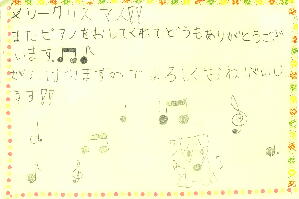 メリークリスマス!!
またピアノをおしてくれてどうもありがとうござ
います。
がんばりますのでよろしくおねがいし
ます!!